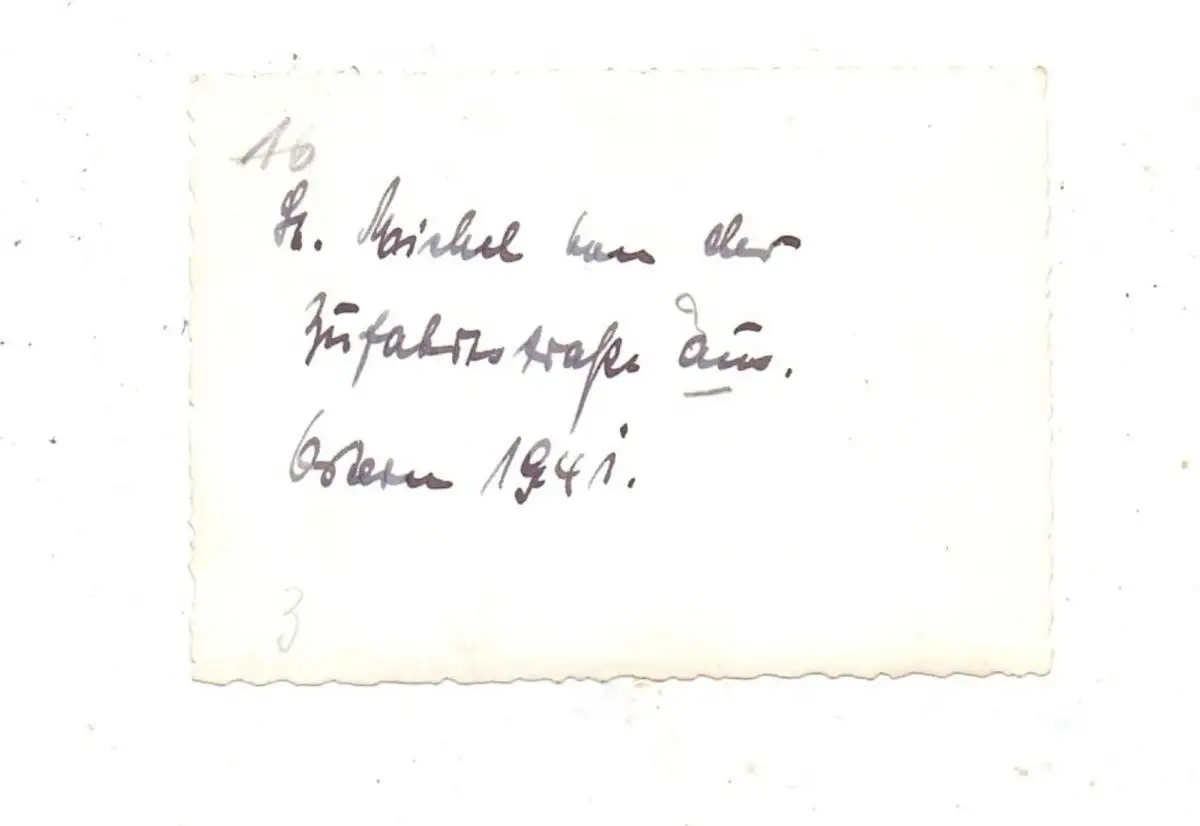 10
St. Michel von der
Zufahrtsstraße aus.
Ostern 1941.
3